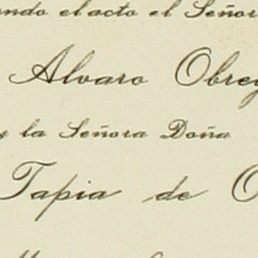 ndo el acto el Señor
Alvaro Obreg
y la Señora Doña
Tapia de O